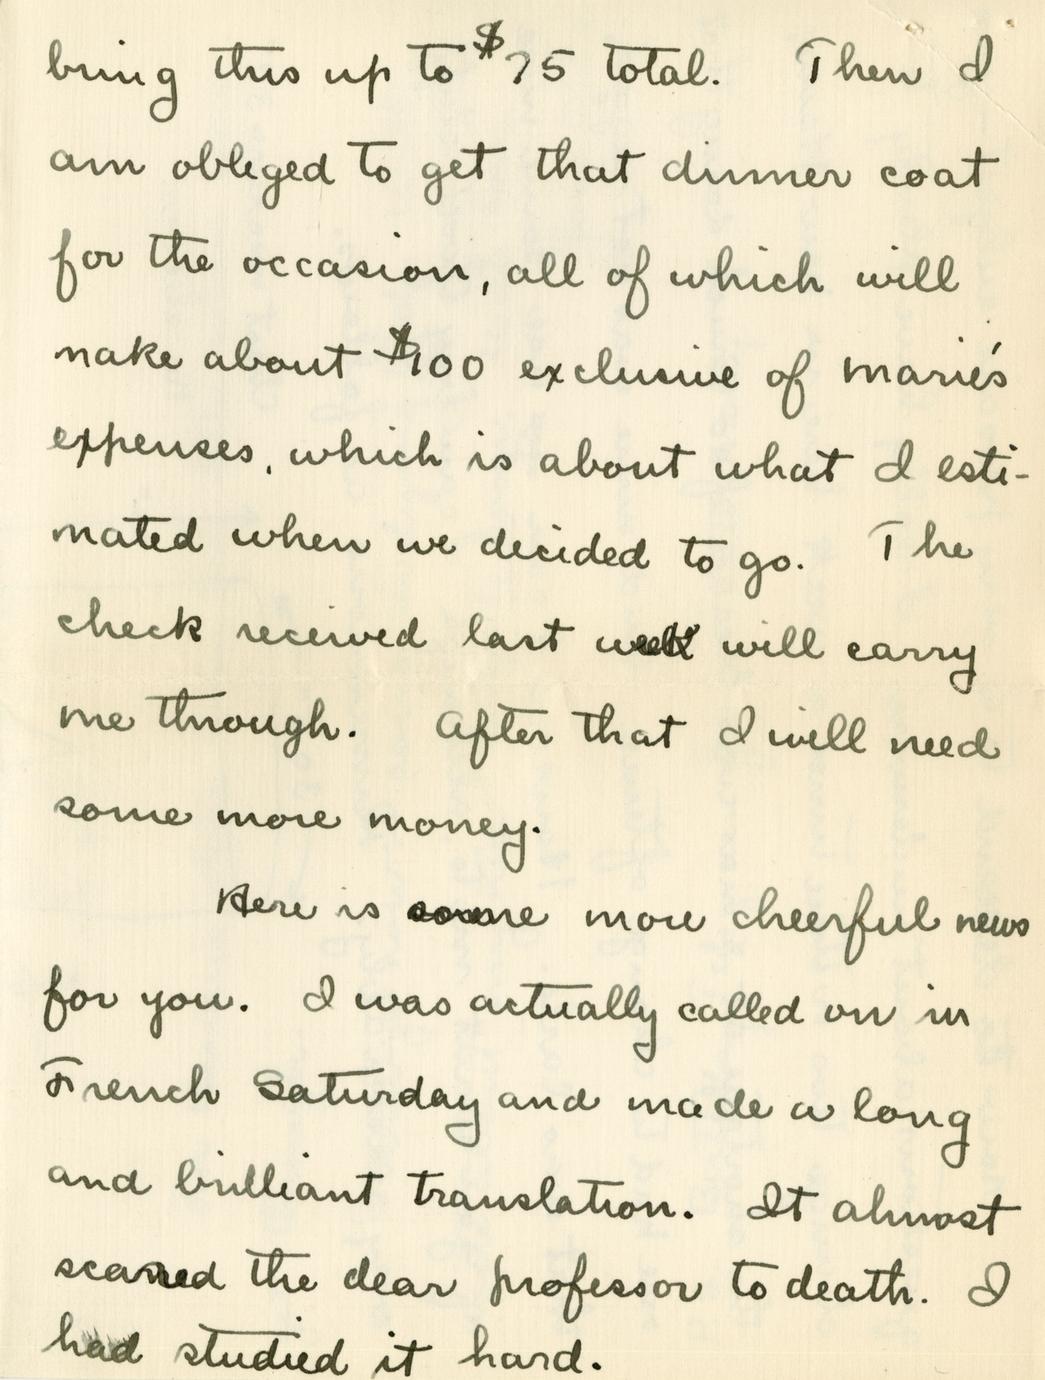 bring this up to $75 total. Then I
am obliged to get that dinner coat
for the occasion, all of which will
make about $100 exclusive of Marie's
expenses, which is about what I esti-
mated when we decided to go. The
check received last week will carry
me through. After that I will need
some more money.
Here is some more cheerful news
for you. I was actually called on in
French Saturday and made a long
and brilliant translation. It almost
scared the dear professor to death. I
had studied it hard.